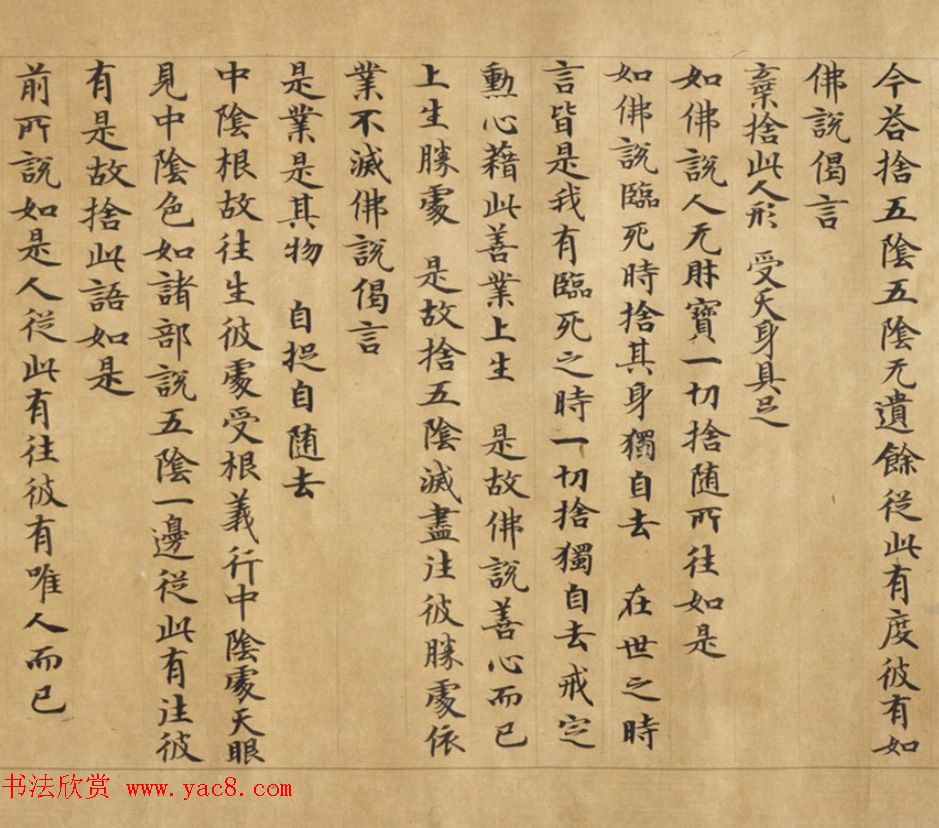 今荅捨五陰五陰无遺餘從此有度彼有如
佛說偈言
棄捨此人形 受天身具足
如佛說人无財寶一切捨随所往如是
如佛說臨死時捨其身獨自去 在世之時
言皆是我有臨死之時一切捨獨自去戒定
勲心藉此善業上生 是故佛說善心而已
上生勝處 是故捨五陰滅盡注彼勝處依
業不滅佛說偈言
是業是其物 自捉自随去
中陰根故往生彼處受根義行中陰處天眼
見中陰色如諸部說五陰一邊從此有注彼
有是故捨此語如是
前所說如是人從此有往彼有唯人而已
书法欣赏 www.yac8.com